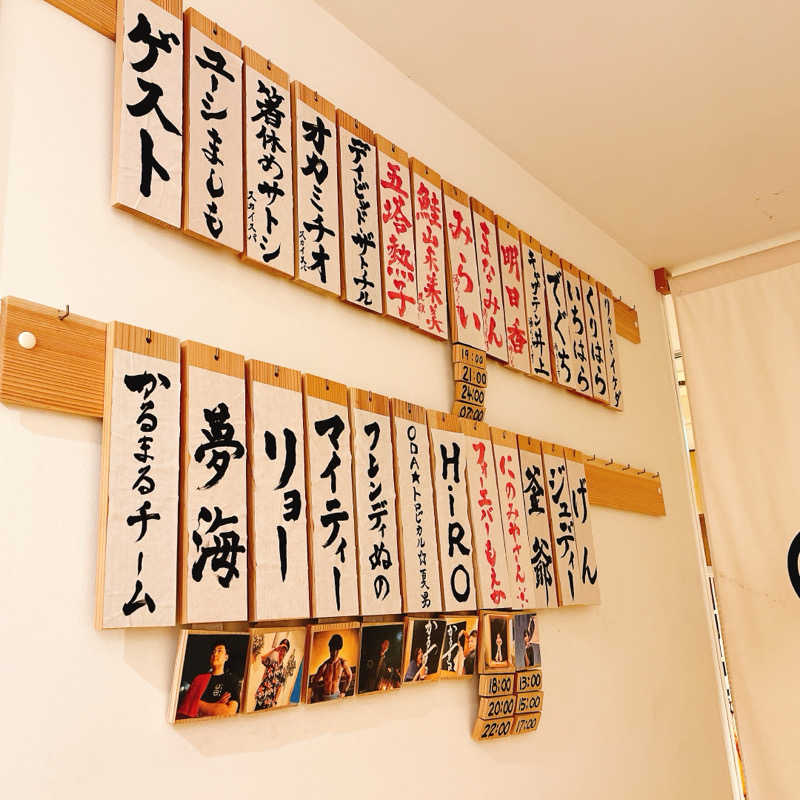 ゲスト
ユーシましも
箸休めサトシ
スカイスパ
オカミチオ
スカイスパ
デイビッド・ザトナル
五塔熱子
鮭山未菜美
みらい
まなみん
明日香
キャザテン井上
でぐち
いちはら
くりはら
19:00
21:00
24:00
07:00
かるまるチーム
夢海
リョー
マイティー
フレンディぬの
ODA★トロピカル☆夏男
HiRO
フォーエバーもえか
にのみやさん
釜爺
ジュディー
げん
18:00
20:00
22:00
13:00
15:00
17:00